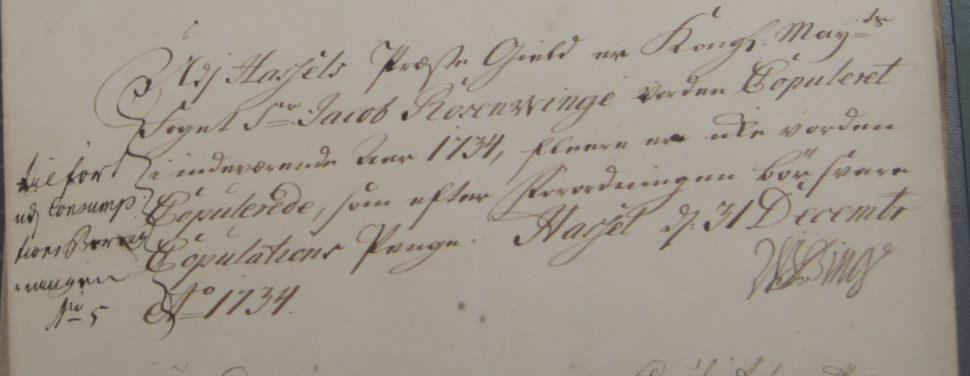 Udj Hassels Præste Gield er Kongl. May=ds
Foget Sr. Jacob Rosenwinge vorden Copuleret
i indeværende Aar 1734, fleere er icke vorden
Copulerede, som efter Forordningen bör svare
Copulations Penge. Hassel dj. 31 Decembr
Ao 1734.
WBing
tilfört
udj Consump=
tions Bereg
ningen
No 5